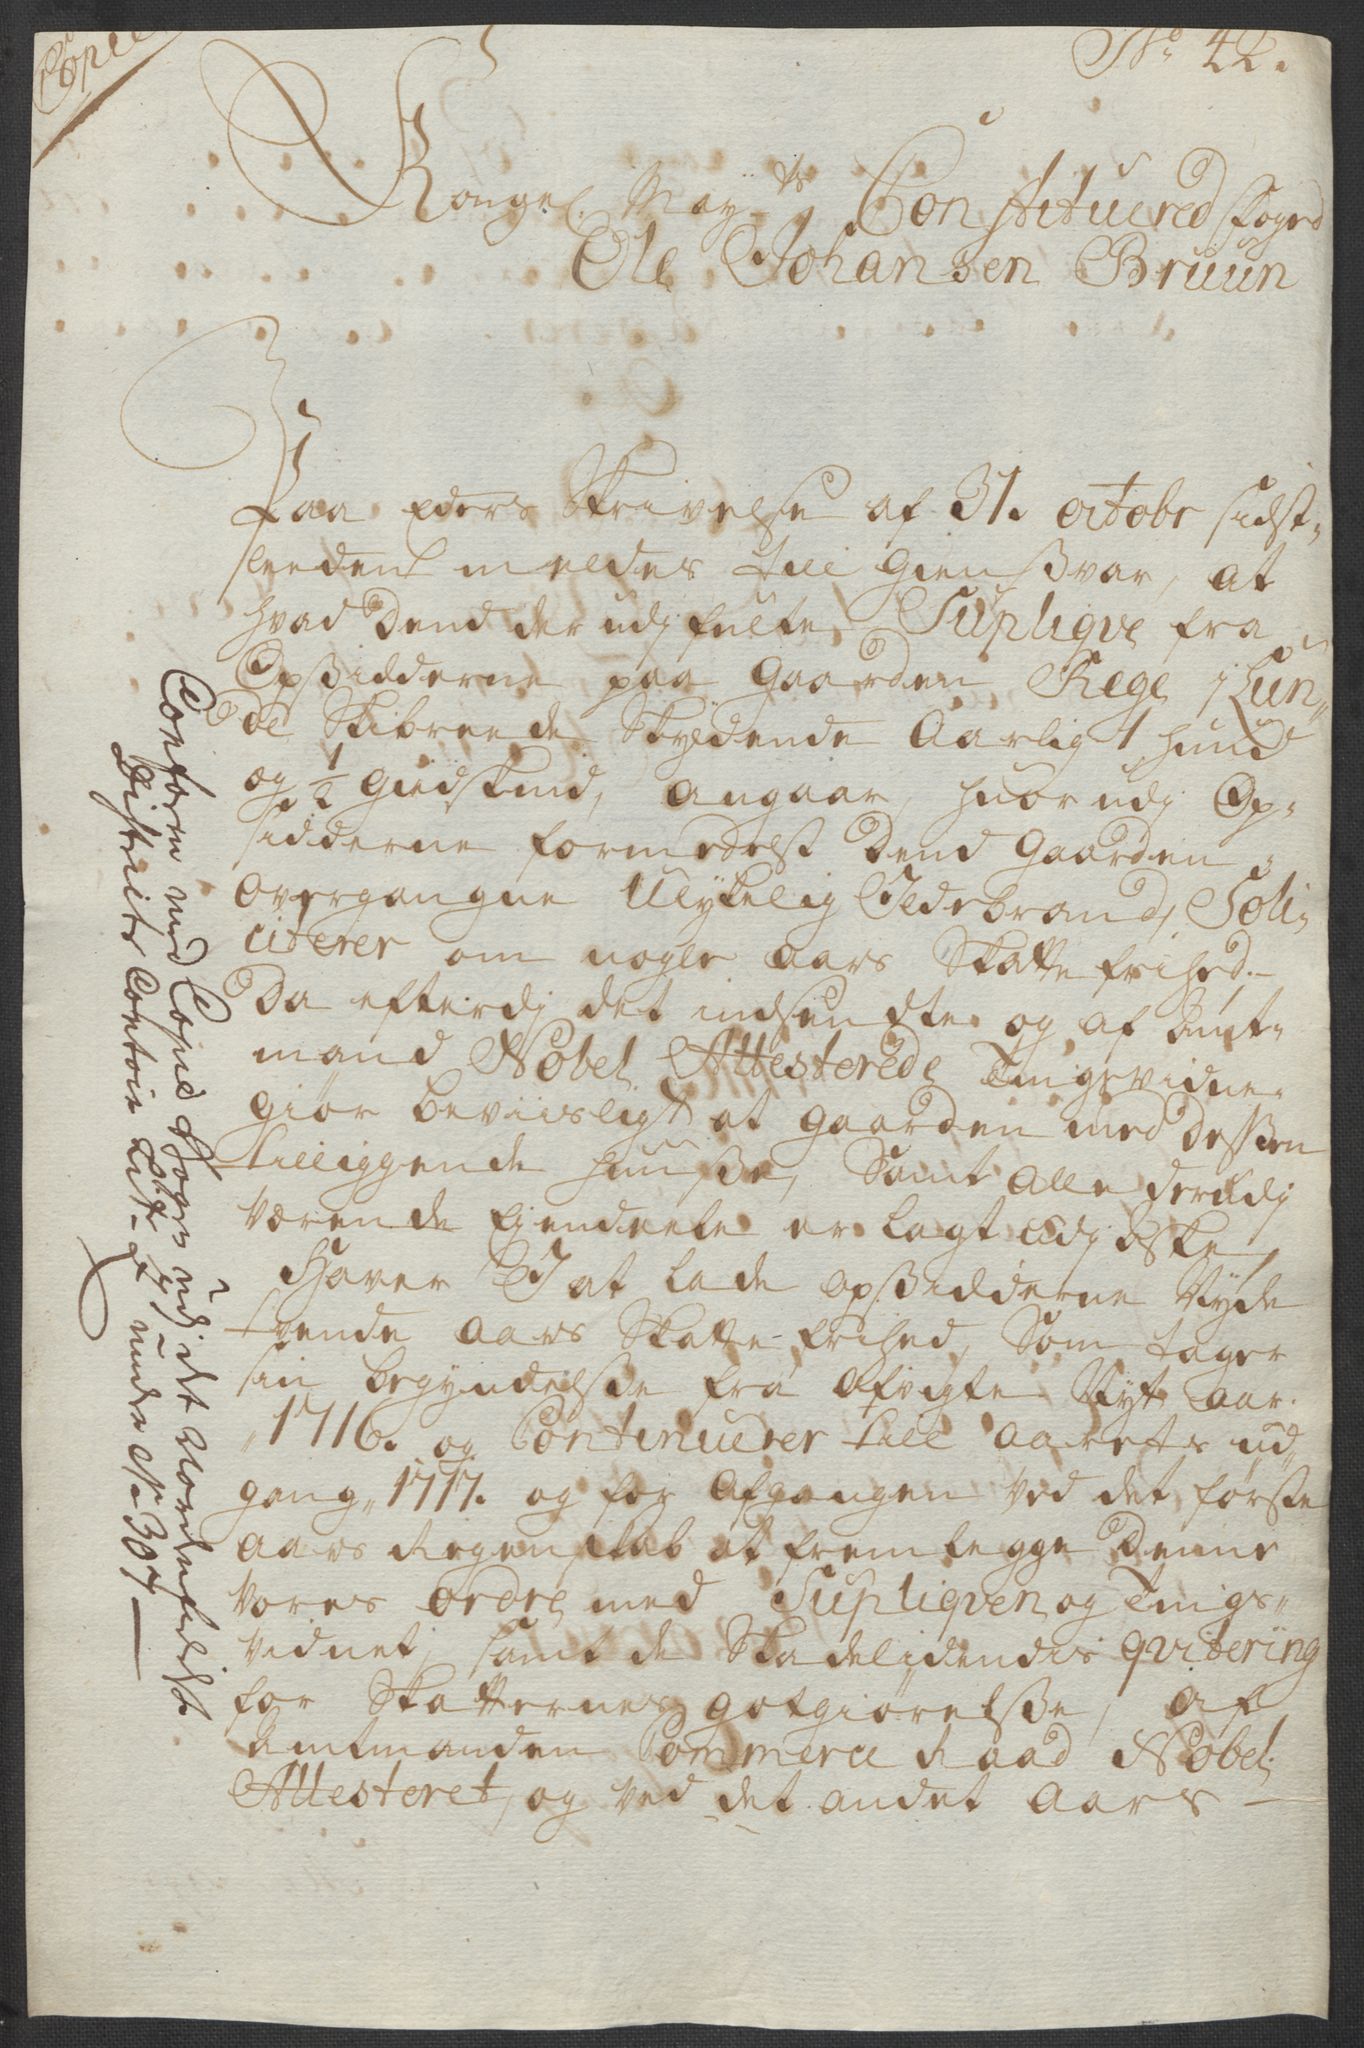 Copie
No 42.
Kongel. Mayts Constituered foged
Ole Johansen Bruun
Paa Eders Skrivelse af 31. octobr sidst-
leeden meldes till giensvar, at
hvad Dend der udj fulte Supliqve fra
Opsidderne paa gaarden Rege j Lun-
De Skibreede Skyldende Aarlig 1 huud
og 1/2 giedskind, angaar, huor udj Op-
sidderne formedelst Dend gaarden
overgangne Ulykelig Ildebrand, Soli-
citerer om nogle aars Skatte frihed.-
Da efterdj det indsendte og af Amt-
mand Nobel Attesterede Tingsvidne
giør beviisligt at gaarden med Dessen
tilliggende huusse, Samt Alle derudj
værende Ejendeele er lagt udj Aske,
Haver I at lade opsidderne Nyde
tvende aars Skatte-frihed, Som tager
sin begyndelsse fra afvigte Nyt aar.
1716. og Continuerer till aarets ud-
gang 1717. og for Afgangen ved det første
aars Regenskab at fremlegge Denne
vores ordre med Supliqven og Tings-
vidnet, samt de Skadelidendis qvitering
for Skatternes gotgiørelsse, af
Amtmanden Commerce Raad Nobel
Attesteret, og ved det andet aars
Conform med Copie Bogen udj det Nordenfieldske
Districts Contoir Litr. F under No. 307